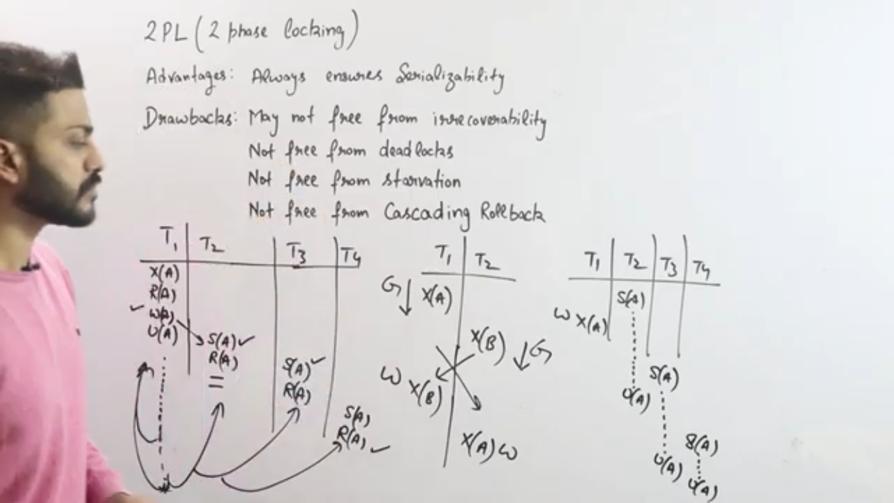 2PL (2 phase locking)
Advantages: Always ensures Serializability
Drawbacks: May not free from irrecoverability
Not free from deadlocks
Not free from starvation
Not free from Cascading Rollback
T1 T2 T3 T4
X(A)
R(A)
✓ W(A)
U(A)
S(A) ✓
R(A)
S(A) ✓
R(A)
S(A)
R(A) ✓
T1 T2
G X(A)
X(B) G
W X(B)
X(A) W
T1 T2 T3 T4
S(A)
W X(A)
U(A)
S(A)
U(A)
S(A)
U(A)